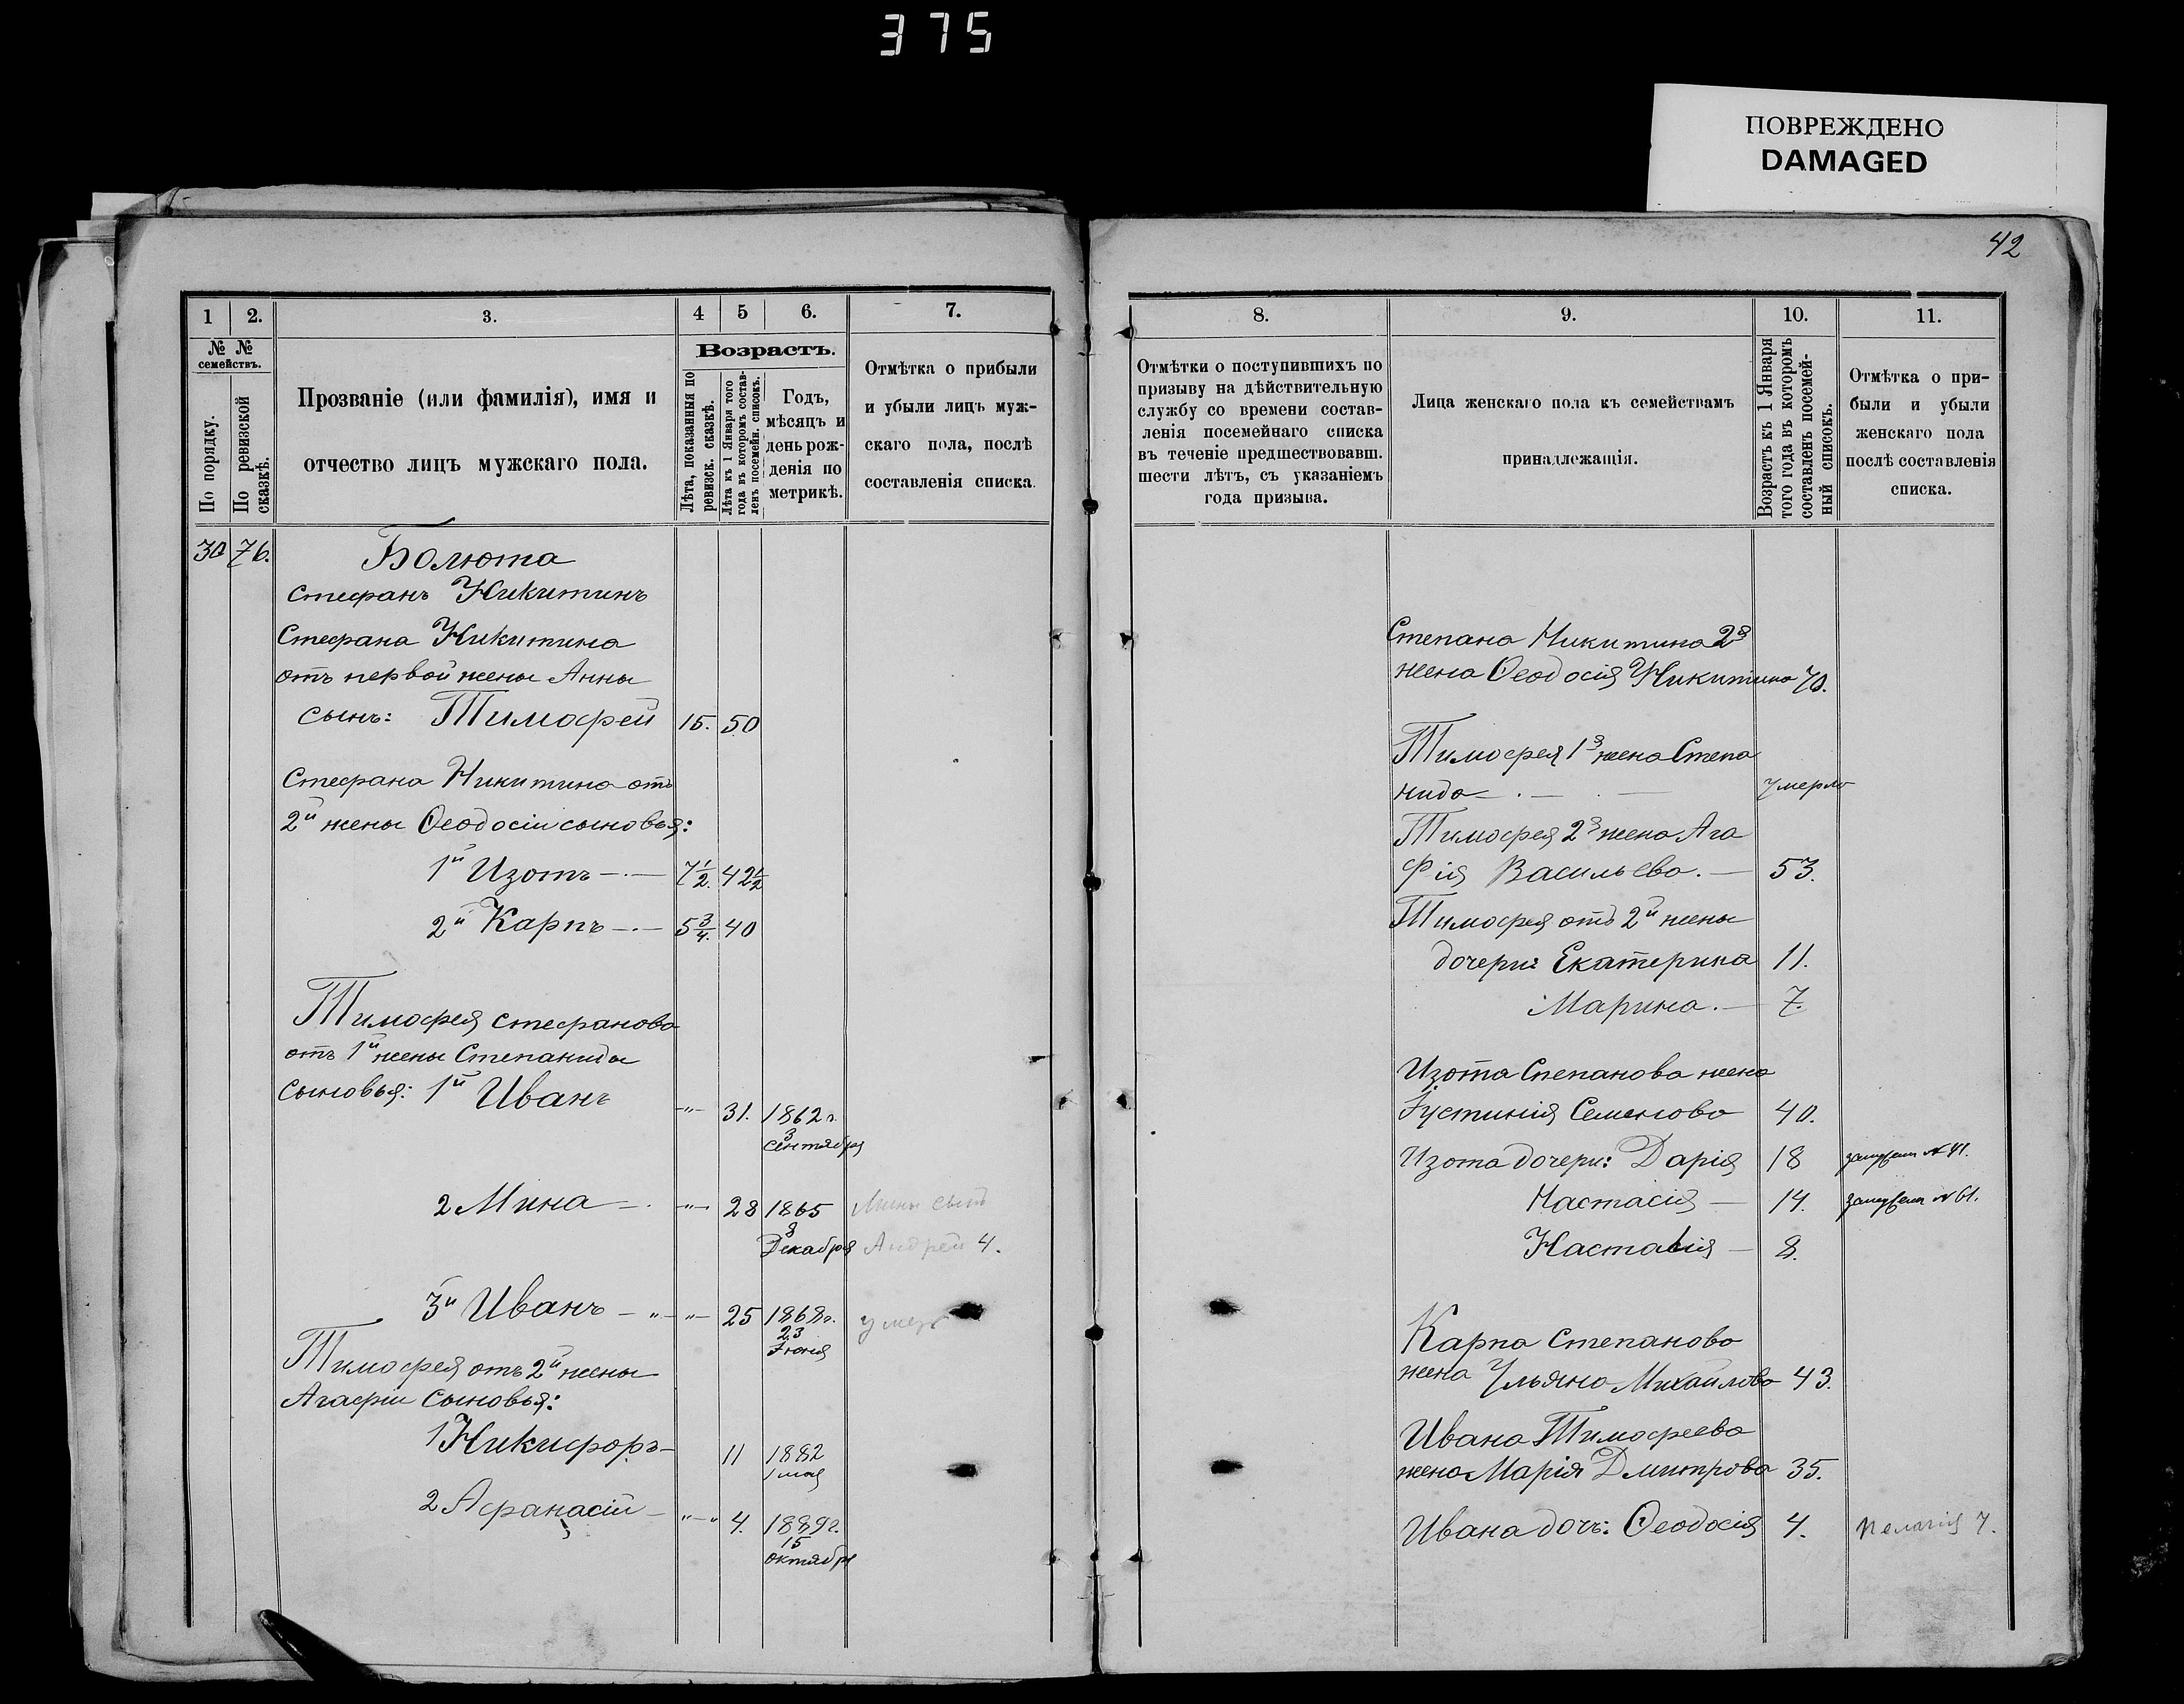 375
ПОВРЕЖДЕНО
DAMAGED
42
1
2.
3.
4
5
6.
7.
№ №
семействъ.
По порядку.
По ревизской
сказкѣ.
Прозваніе (или фамилія), имя и
отчество лицъ мужскаго пола.
Возрастъ.
Лѣта, показанныя по
ревизск. сказкѣ.
Лѣта къ 1 Января того
года въ которомъ состав-
ленъ посемейн. списокъ.
Годъ,
мѣсяцъ и
день рож-
денія по
метрикѣ.
Отмѣтка о прибыли
и убыли лицъ муж-
скаго пола, послѣ
составленія списка.
30 76. Болюта
Стефанъ Никитинъ
Стефана Никитина
отъ первой жены Анны
сынъ: Тимофей 15. 50
Стефана Никитина отъ
2й жены Ѳеодосіи сыновья:
1й Изотъ 7 1/2. 42 1/2
2й Карпъ 5 3/4. 40
Тимофея Стефанова
отъ 1й жены Степаниды
сыновья: 1й Иванъ 31. 1862 г.
3
сентября
2 Мина 28 1865 Мины сынъ
3
Декабря Андрей 4.
3й Иванъ 25 1868г. умеръ
23
Іюня
Тимофея отъ 2й жены
Агафіи сыновья:
1 Никифоръ 11 1882
1 мая
2 Афанасій 4. 1889г.
15
октября
8.
9.
10.
11.
Отмѣтки о поступившихъ по
призыву на дѣйствительную
службу со времени состав-
ленія посемейнаго списка
въ теченіе предшествовавш.
шести лѣтъ, съ указаніемъ
года призыва.
Лица женскаго пола къ семействамъ
принадлежащія.
Возрастъ къ 1 Января
того года въ которомъ
составленъ посемей-
ный списокъ.
Отмѣтка о при-
были и убыли
женскаго пола
послѣ составленія
списка.
Степана Никитина 2я
жена Ѳеодосія Никитина 70.
Тимофея 1я жена Степа
нида умерла
Тимофея 2я жена Ага
фія Васильева. 53.
Тимофея отъ 2й жены
дочери: Екатерина 11.
Марина. 7.
Изота Степанова жена
Іустинія Семенова 40.
Изота дочери: Дарія 18 № 41.
Настасія 14. № 61.
Настасія 8.
Карпа Степанова
жена Ульяна Михайлова 43.
Ивана Тимофеева
жена Марія Дмитрова 35.
Ивана дочь: Ѳеодосія 4. Пелагія 7.